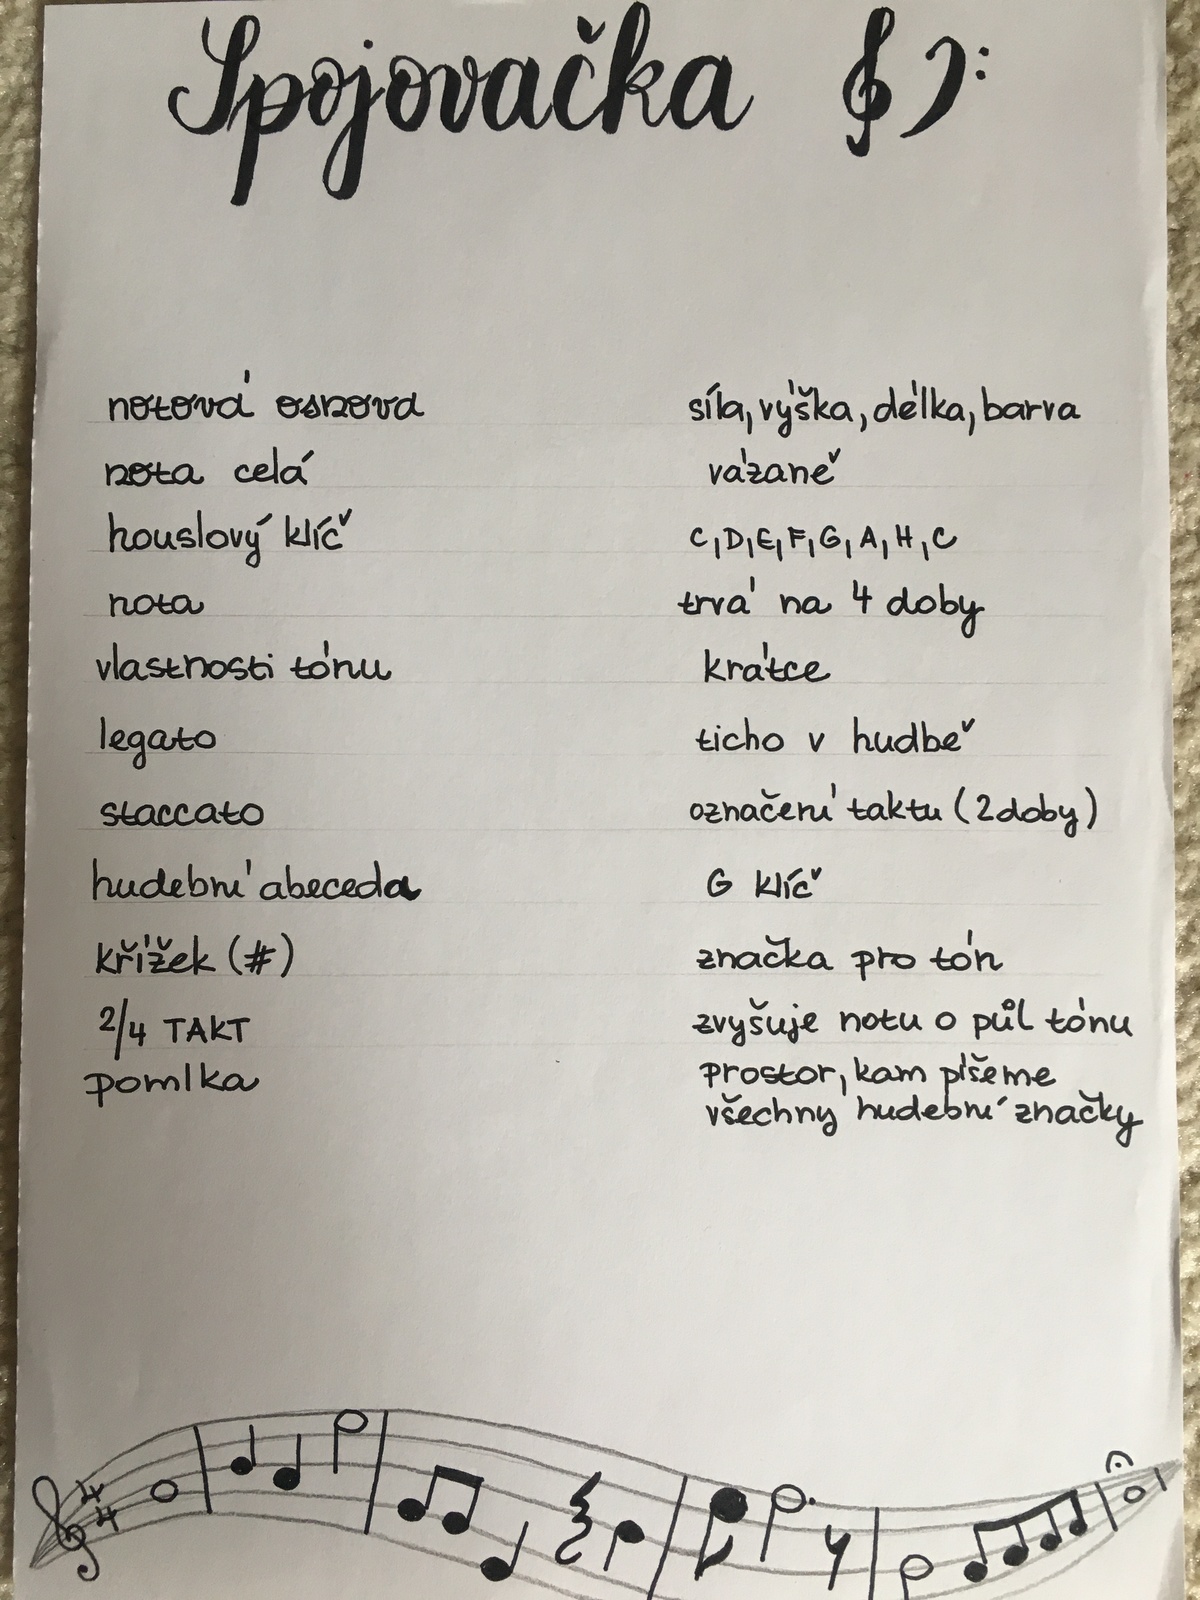 Spojovačka
notová osnova síla, výška, délka, barva
nota celá vázaně
houslový klíč C, D, E, F, G, A, H, C
nota trvá na 4 doby
vlastnosti tónu krátce
legato ticho v hudbě
staccato označení taktu (2 doby)
hudební abeceda G klíč
křížek (#) značka pro tón
2/4 TAKT zvyšuje notu o půl tónu
pomlka prostor, kam píšeme
všechny hudební značky
4
4